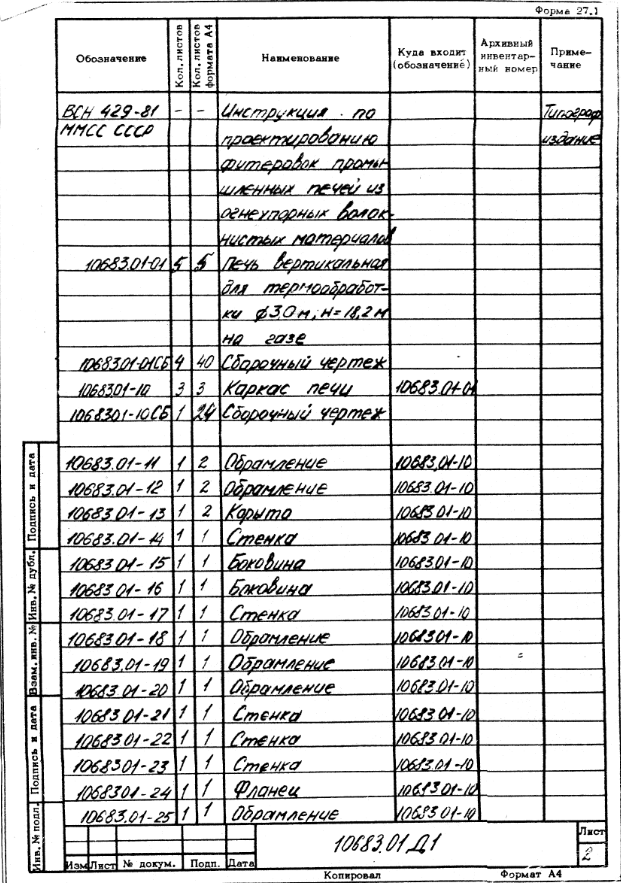 Форма 27.1
Обозначение Кол. листов Кол. листов формата А4 Наименование Куда входит (обозначение) Архивный инвентар-ный номер Приме-чание
ВСН 429-81 - - Инструкция по Типограф
ММСС СССР проектированию издание
футеровок промы-
шленных печей из
огнеупорных волок-
нистых материалов
10683.01-01 5 5 Печь вертикальная
для термообработ-
ки ϕ3,0м; H=18,2м
на газе
10683.01-01СБ 4 40 Сборочный чертеж
10683.01-10 3 3 Каркас печи 10683.01-01
10683.01-10СБ 1 24 Сборочный чертеж
10683.01-11 1 2 Обрамление 10683.01-10
10683.01-12 1 2 Обрамление 10683.01-10
10683.01-13 1 2 Корыто 10683.01-10
10683.01-14 1 1 Стенка 10683.01-10
10683.01-15 1 1 Боковина 10683.01-10
10683.01-16 1 1 Боковина 10683.01-10
10683.01-17 1 1 Стенка 10683.01-10
10683.01-18 1 1 Обрамление 10683.01-10
10683.01-19 1 1 Обрамление 10683.01-10
10683.01-20 1 1 Обрамление 10683.01-10
10683.01-21 1 1 Стенка 10683.01-10
10683.01-22 1 1 Стенка 10683.01-10
10683.01-23 1 1 Стенка 10683.01-10
10683.01-24 1 1 Фланец 10683.01-10
10683.01-25 1 1 Обрамление 10683.01-10
Инв. № подл. Подпись и дата Взам. инв. № Инв. № дубл. Подпись и дата
10683.01 Д1
Лист
2
Изм Лист № докум. Подп. Дата
Копировал Формат А4